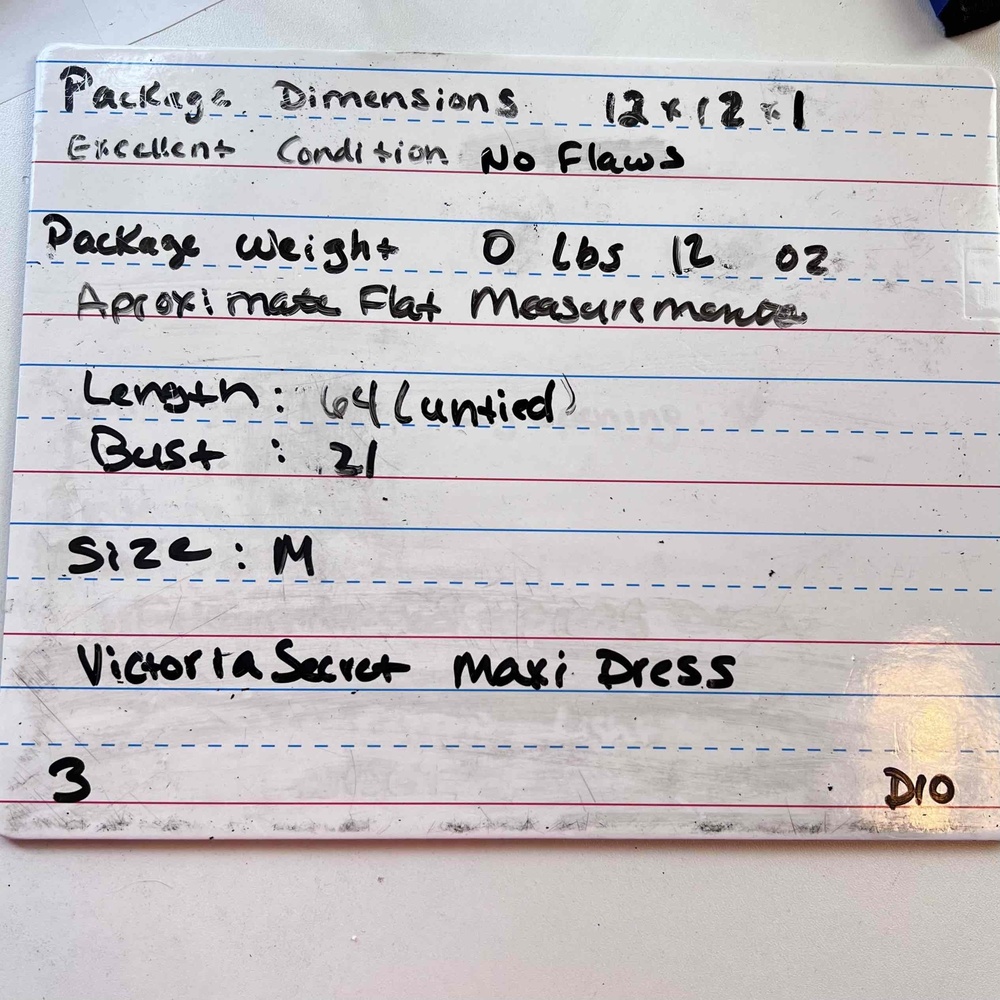 Package Dimensions 12 x 12 x 1
Excellent Condition No Flaws
Package Weight 0 lbs 12 oz
Aproximate Flat Measurements
Length : 64 (untied)
Bust : 21
Size : M
Victoria Secret Maxi Dress
3 D10